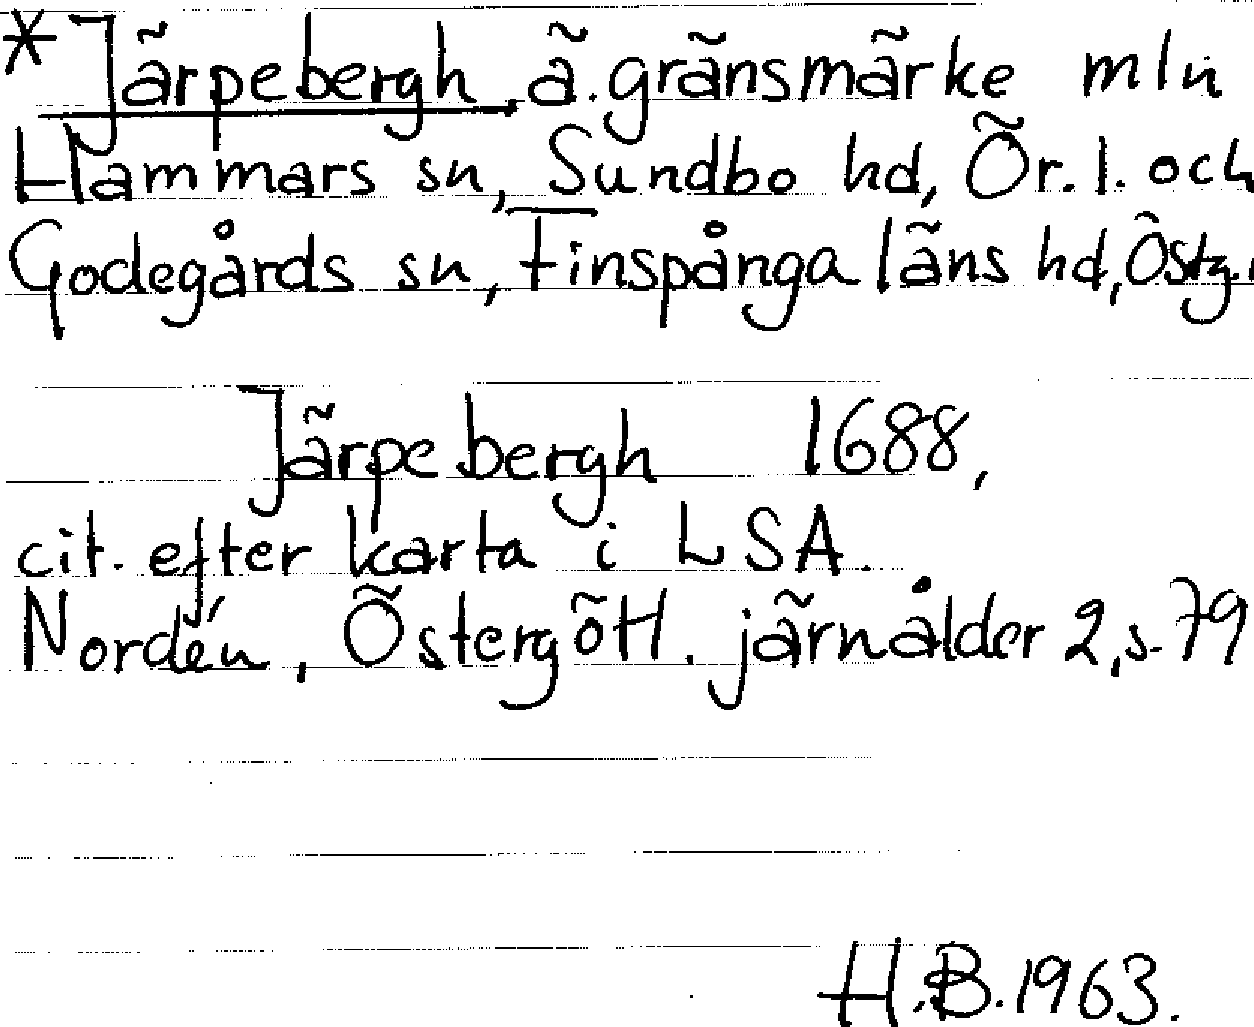 * Järpebergh, ä. gränsmärke mln
Hammars sn, Sundbo hd, Ör. l. och
Godegårds sn, Finspånga läns hd, Östg.
Järpebergh 1688,
cit. efter karta i LSA.
Nordén, Östergötl. järnålder 2, s. 79
H.B. 1963.